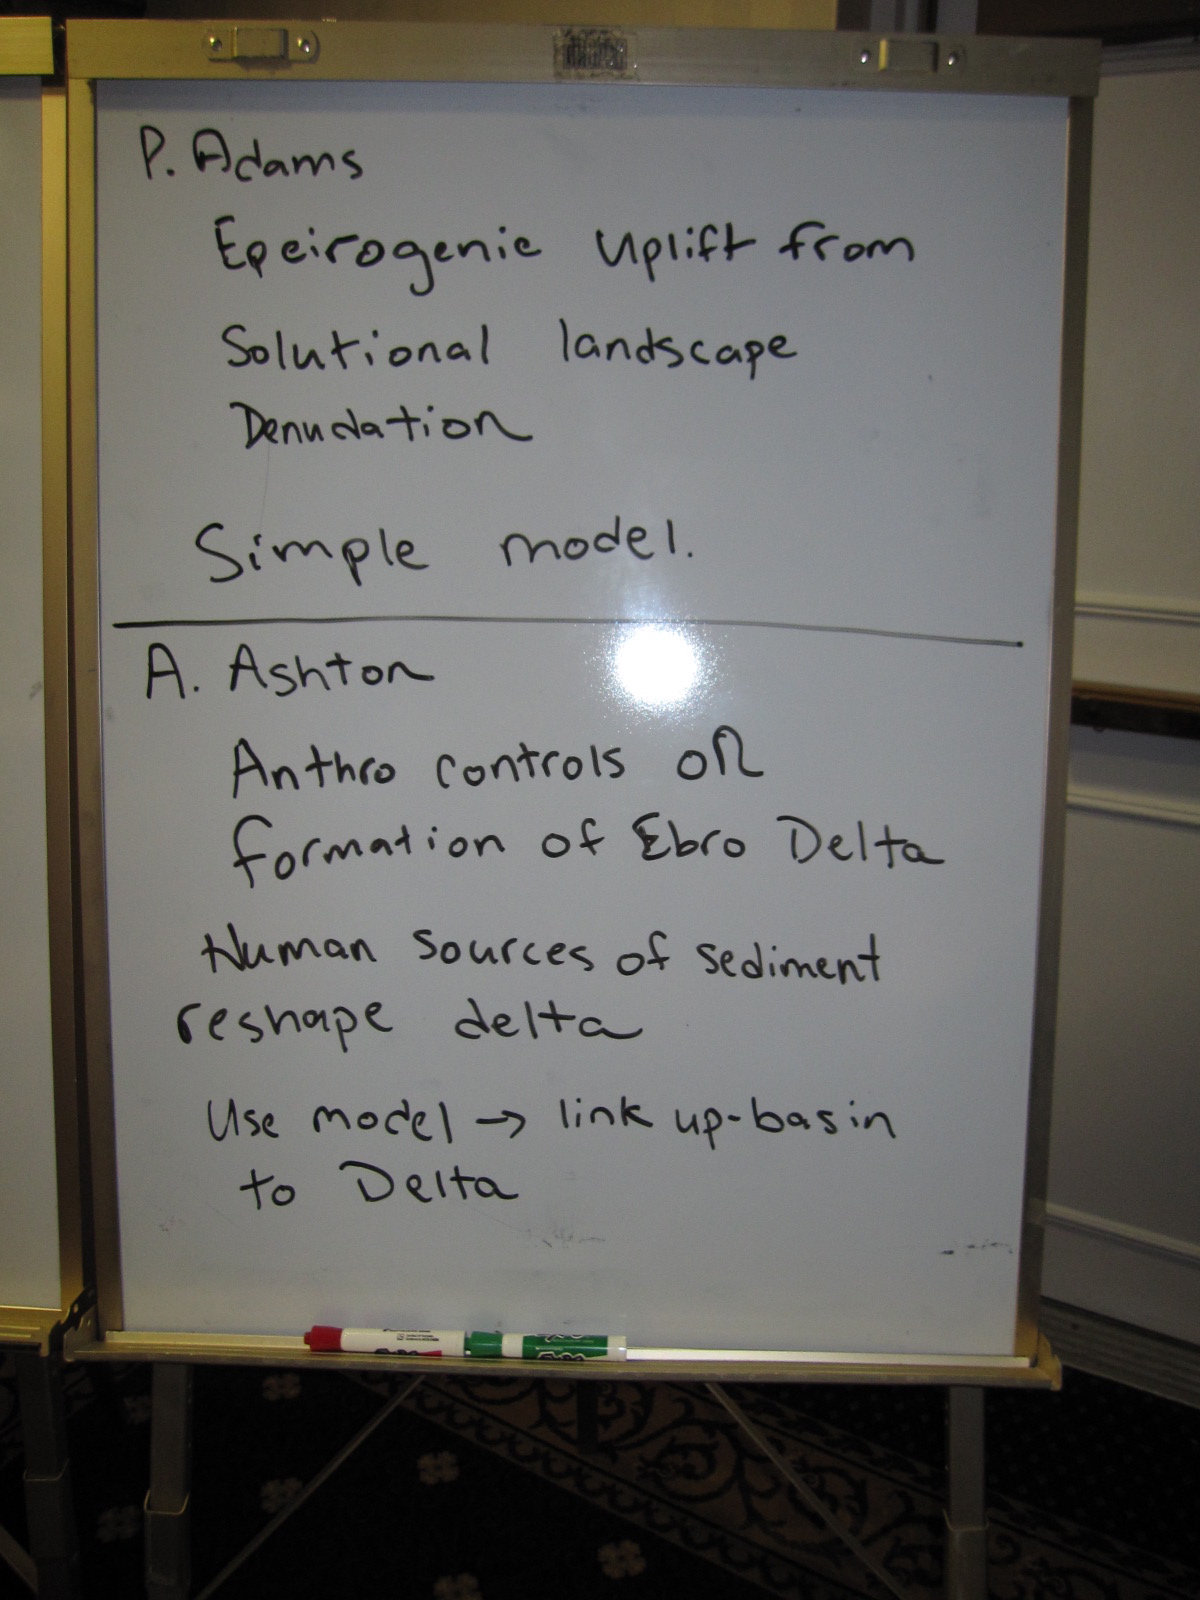 P. Adams
Epeirogenic Uplift from
Solutional landscape
Denudation
Simple model.
A. Ashton
Anthro controls on
formation of Ebro Delta
Human sources of sediment
reshape delta
Use model → link up-basin
to Delta